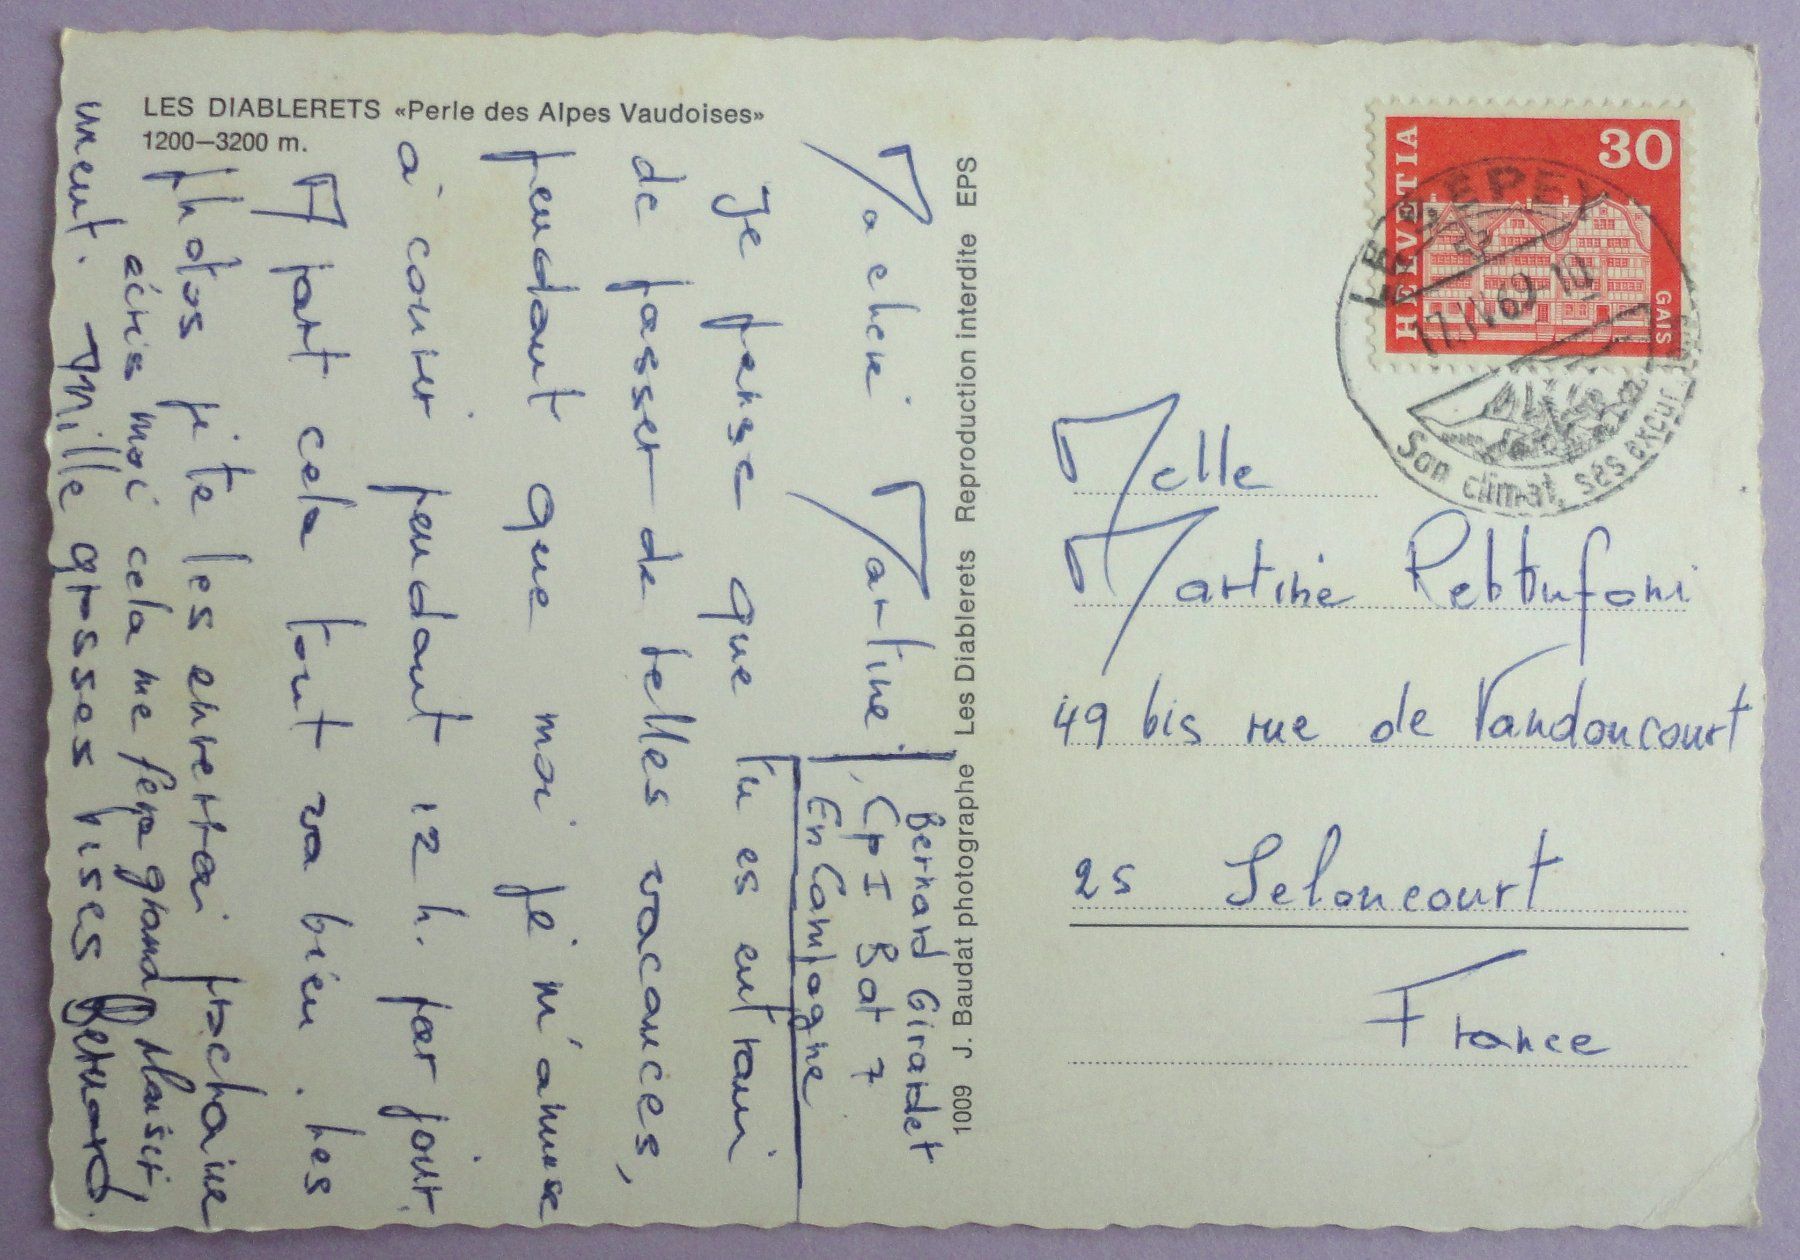 LES DIABLERETS «Perle des Alpes Vaudoises»
1200–3200 m.
Ma cheri Martine
Je pense que tu es entraui
de passer de telles vacances,
pendant que moi je m'amuse
a courir pendant 12 h. par jour.
A part cela tout va bien. Les
photos je te les enverrai prochaine
ment. Mille grosses bises Bernard
écris moi cela me fera grand plaisir,
Bernard Girardet
Cp I Bat 7
En Campagne
1009 J. Baudat photographe Les Diablerets Reproduction interdite EPS
HELVETIA
30
GAIS
LE SEPEY
69-10
Son climat, ses excur
Melle
Martine
49 bis rue de Vandoncourt
25 Seloncourt
France